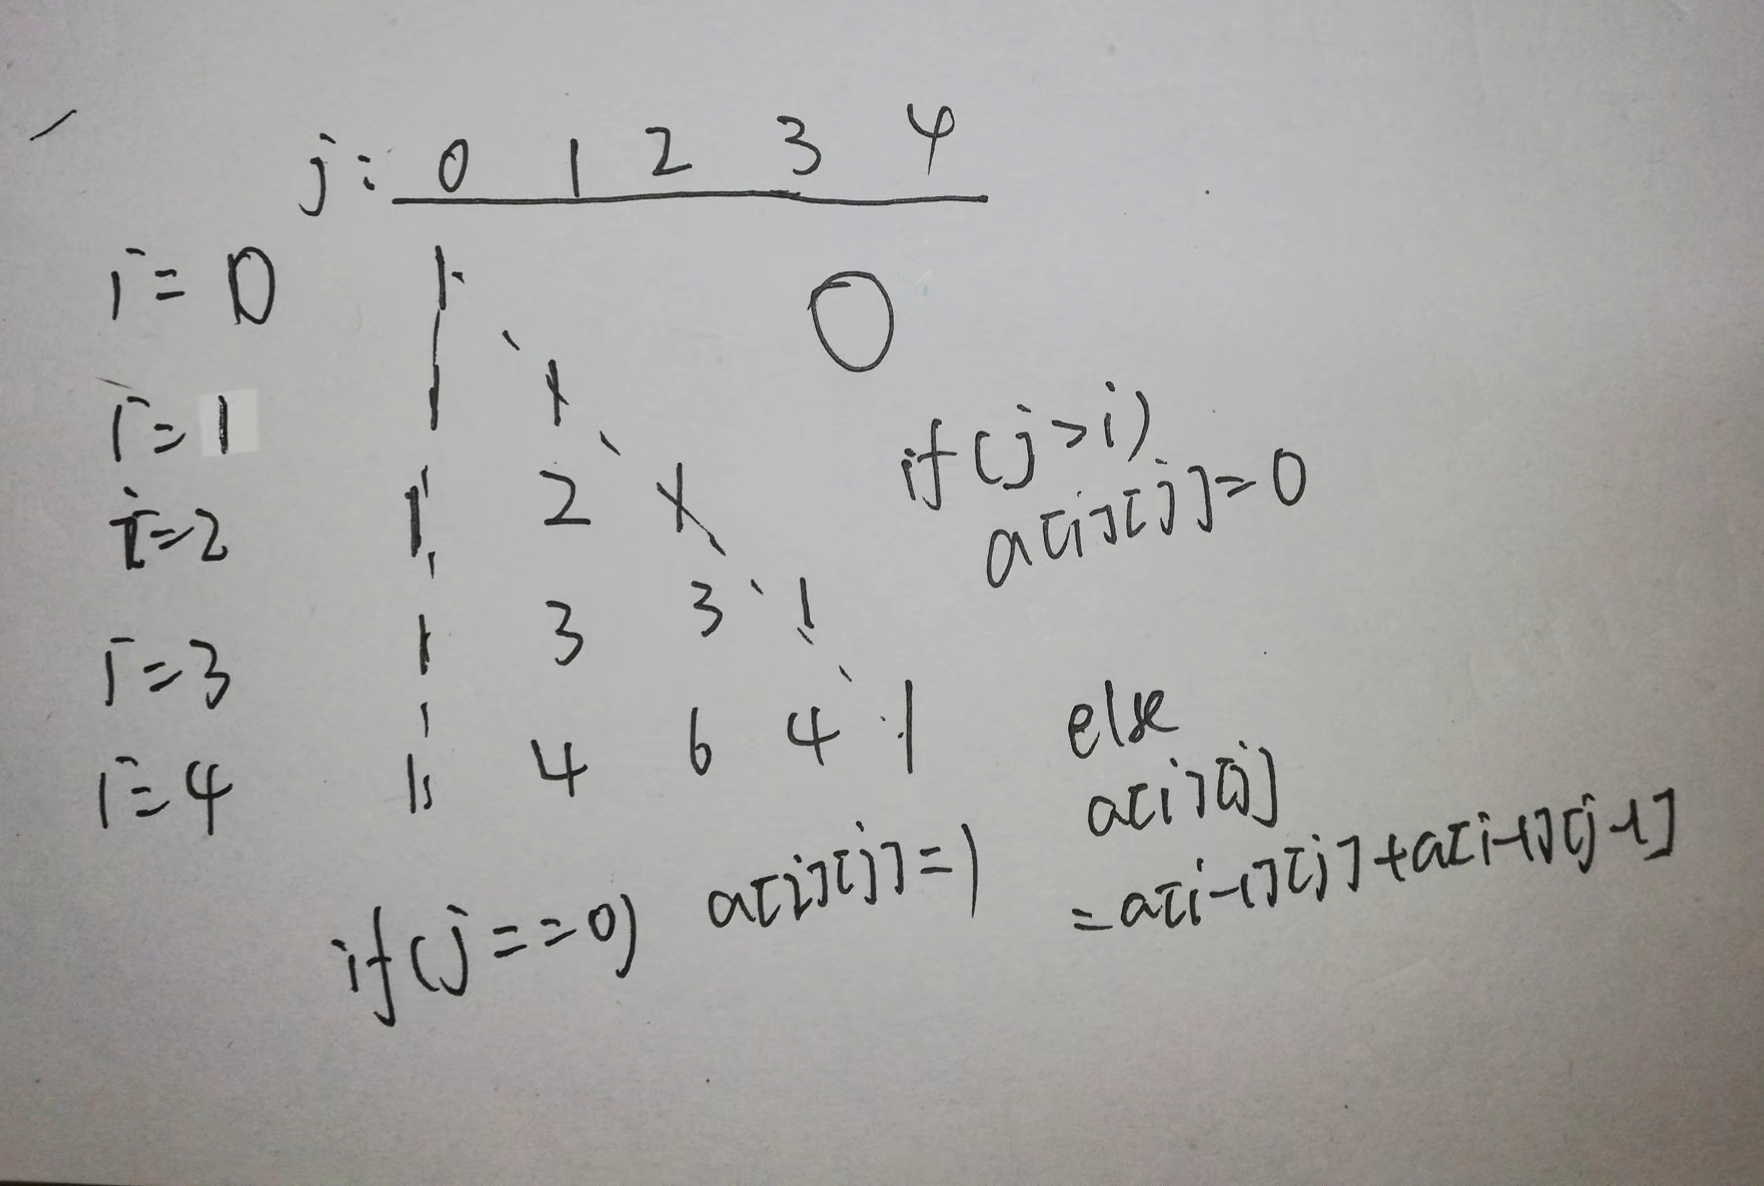 j: 0 1 2 3 4
i=0 1 0
i=1 1 1
i=2 1 2 1
i=3 1 3 3 1
i=4 1 4 6 4 1
if(j>i)
a[i][j]=0
else
a[i][j]
=a[i-1][j]+a[i-1][j-1]
if(j==0) a[i][j]=1